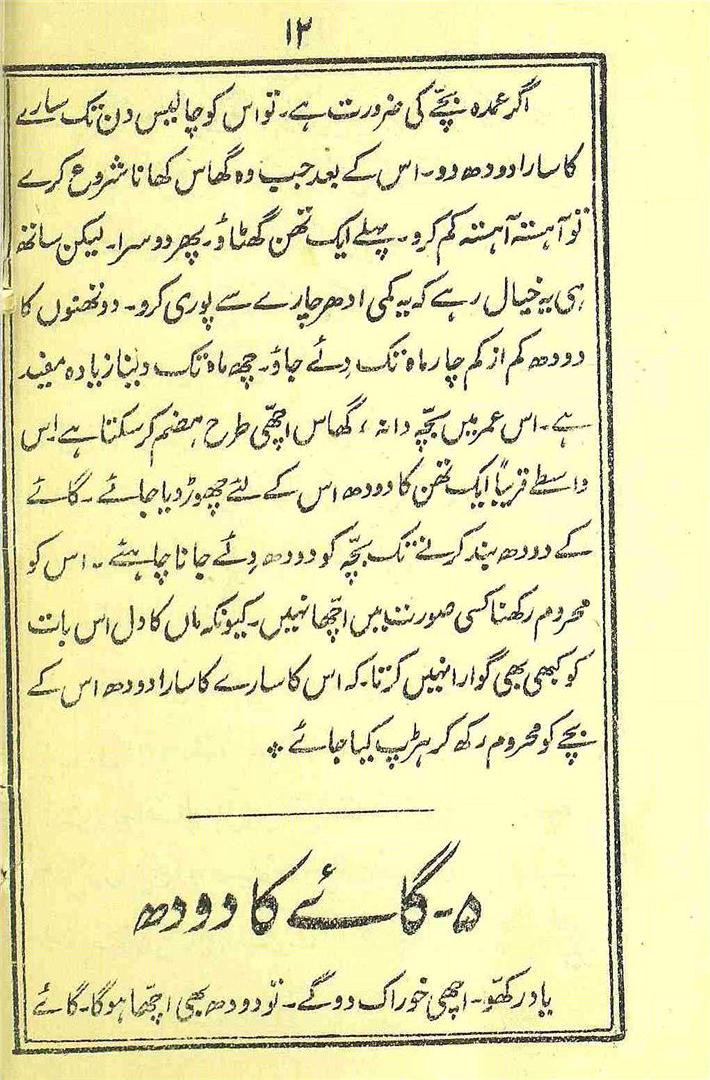 ۱۲
اگر عمدہ بچّے کی ضرورت ہے۔ تو اس کو چالیس دن تک سارے
کا سارا دودھ دو۔ اس کے بعد جب وہ گھاس کھانا شروع کرے
تو آہستہ آہستہ کم کرو۔ پہلے ایک تھن گھٹاؤ۔ پھر دوسرا۔ لیکن ساتھ
ہی یہ خیال رہے کہ یہ کمی ادھر چارے سے پوری کرو۔ دو تھنوں کا
دودھ کم از کم چار ماہ تک دِئے جاؤ۔ چھ ماہ تک دینا زیادہ مفید
ہے۔ اس عمر میں بچّہ دانہ ، گھاس اچھّی طرح ہضم کر سکتا ہے اِس
واسطے قریباً ایک تھن کا دودھ اس کے لئے چھوڑ دیا جائے۔ گائے
کے دودھ بند کرنے تک بچّہ کو دودھ دِئے جانا چاہئے۔ اس کو
محروم رکھنا کسی صورت میں اچّھا نہیں۔ کیونکہ ماں کا دل اس بات
کو کبھی بھی گوارا نہیں کرتا۔ کہ اس کا سارے کا سارا دودھ اس کے
بچے کو محروم رکھ کر ہڑپ کیا جائے ۔
۵۔ گائے کا دودھ
یاد رکھّو۔ اچھی خوراک دو گے۔ تو دودھ بھی اچّھا ہوگا۔ گائے